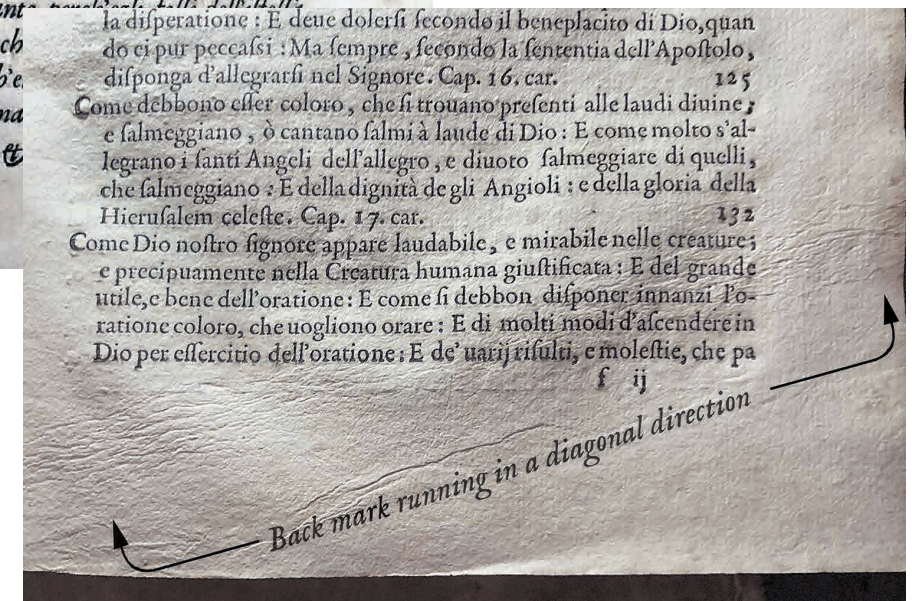 la diſperatione : E deue dolerſi ſecondo il beneplacito di Dio,quan
do ci pur peccaſsi : Ma ſempre , ſecondo la ſententia dell'Apoſtolo,
diſponga d'allegrarſi nel Signore. Cap. 16. car. 125
Come debbono eſſer coloro , che ſi trouano preſenti alle laudi diuine ;
e ſalmeggiano , ò cantano ſalmi à laude di Dio : E come molto s'al-
legrano i ſanti Angeli dell'allegro , e diuoto ſalmeggiare di quelli,
che ſalmeggiano : E della dignità de gli Angioli : e della gloria della
Hieruſalem celeſte. Cap. 17. car. 132
Come Dio noſtro ſignore appare laudabile, e mirabile nelle creature;
e precipuamente nella Creatura humana giuſtificata : E del grande
utile,e bene dell'oratione: E come ſi debbon diſponer innanzi l'o-
ratione coloro, che uogliono orare : E di molti modi d'aſcendere in
Dio per eſſercitio dell'oratione : E de' uarij riſulti, e moleſtie, che pa
f ij
Back mark running in a diagonal direction
ch
na
&